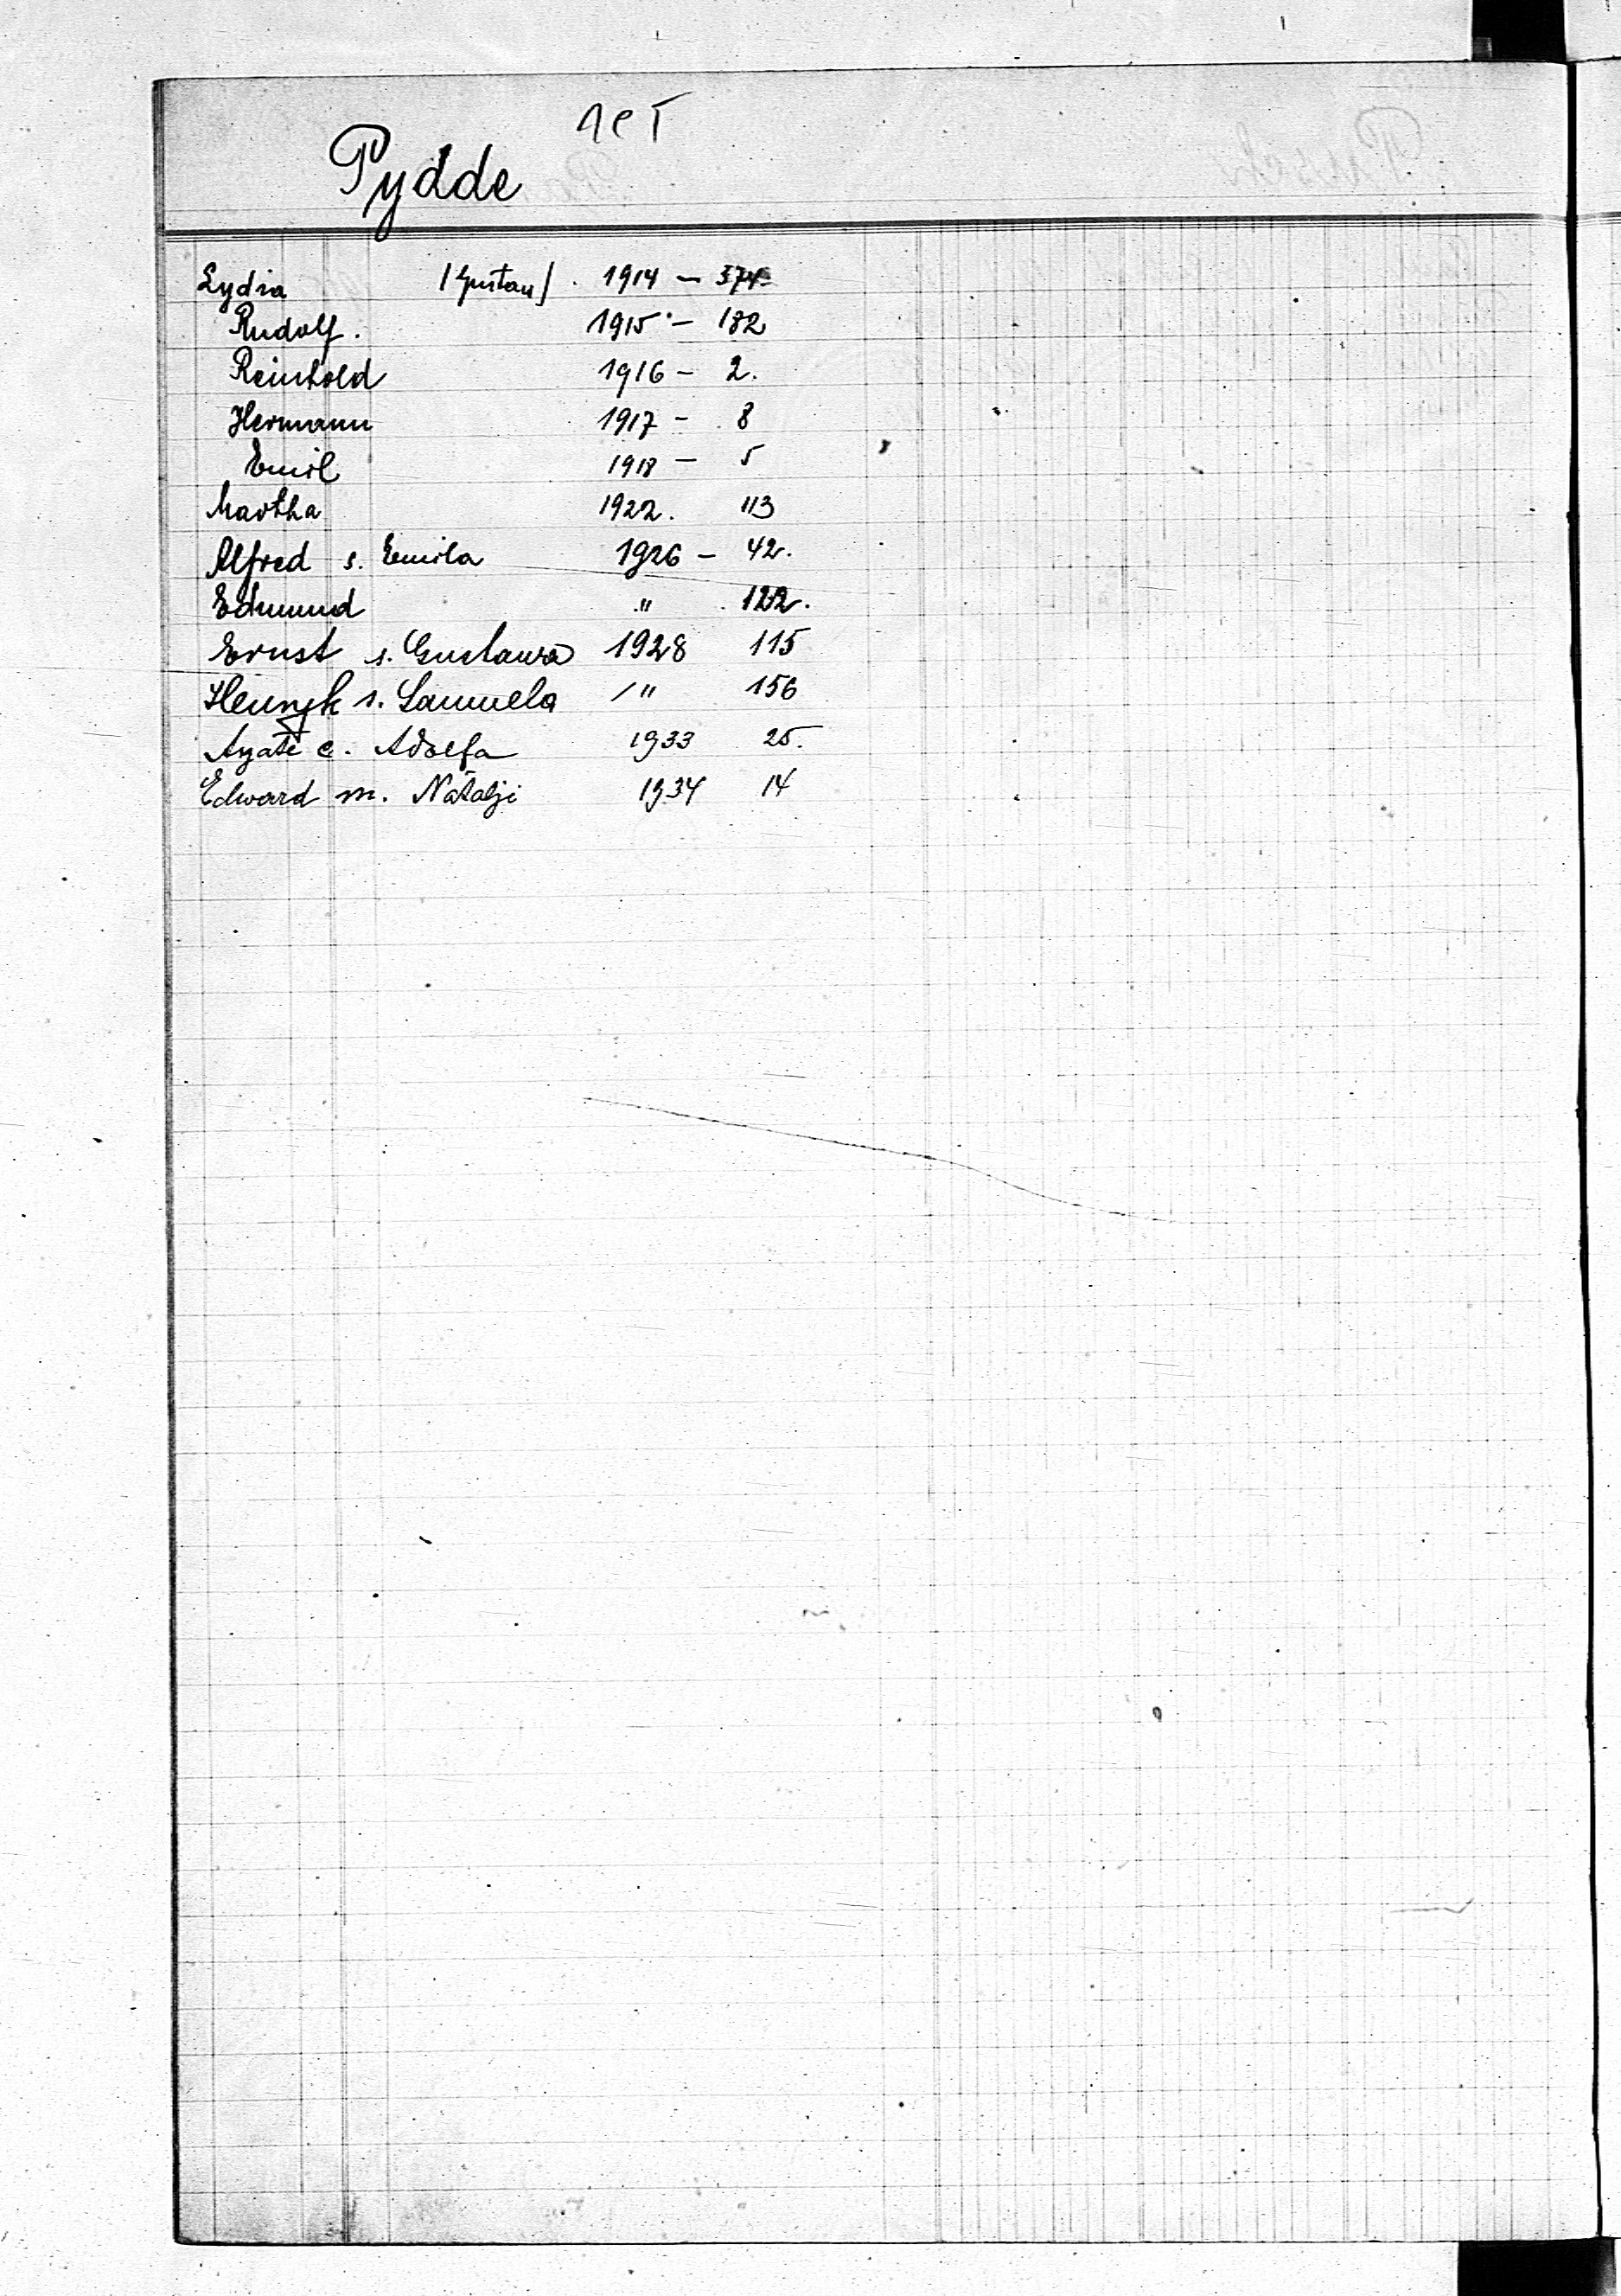 Pydde
Lydia /Gustav/. 1914 - 374
Rudolf. 1915 - 182
Reinhold 1916 - 2.
Hermann 1917 - 8
Emil 1918 - 5
Martha 1922. 113
Alfred s. Emila 1926 - 42.
Edmund " 122.
Ernst s. Gustawa 1928 115
Henryk s. Samuela " 156
Agate c. Adolfa 1933 25.
Edward m. Natalji 1934 14